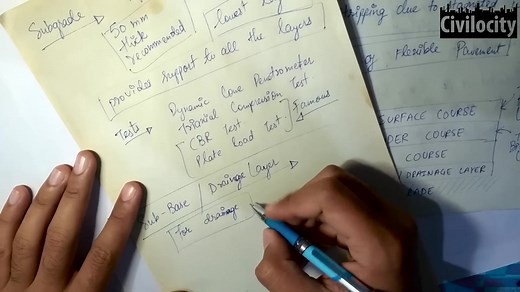 Subgrade
50 mm
thick
recommended
lowest
provides support to all the layers
Tests
Dynamic Cone Penetrometer
Triaxial Compression Test
CBR Test
Plate Load Test
Famous
Sub-Base / Drainage Layer
For drainage
stripping due to
Civilocity
Flexible Pavement
SURFACE COURSE
DER COURSE
COURSE
DRAINAGE LAYER
RADE